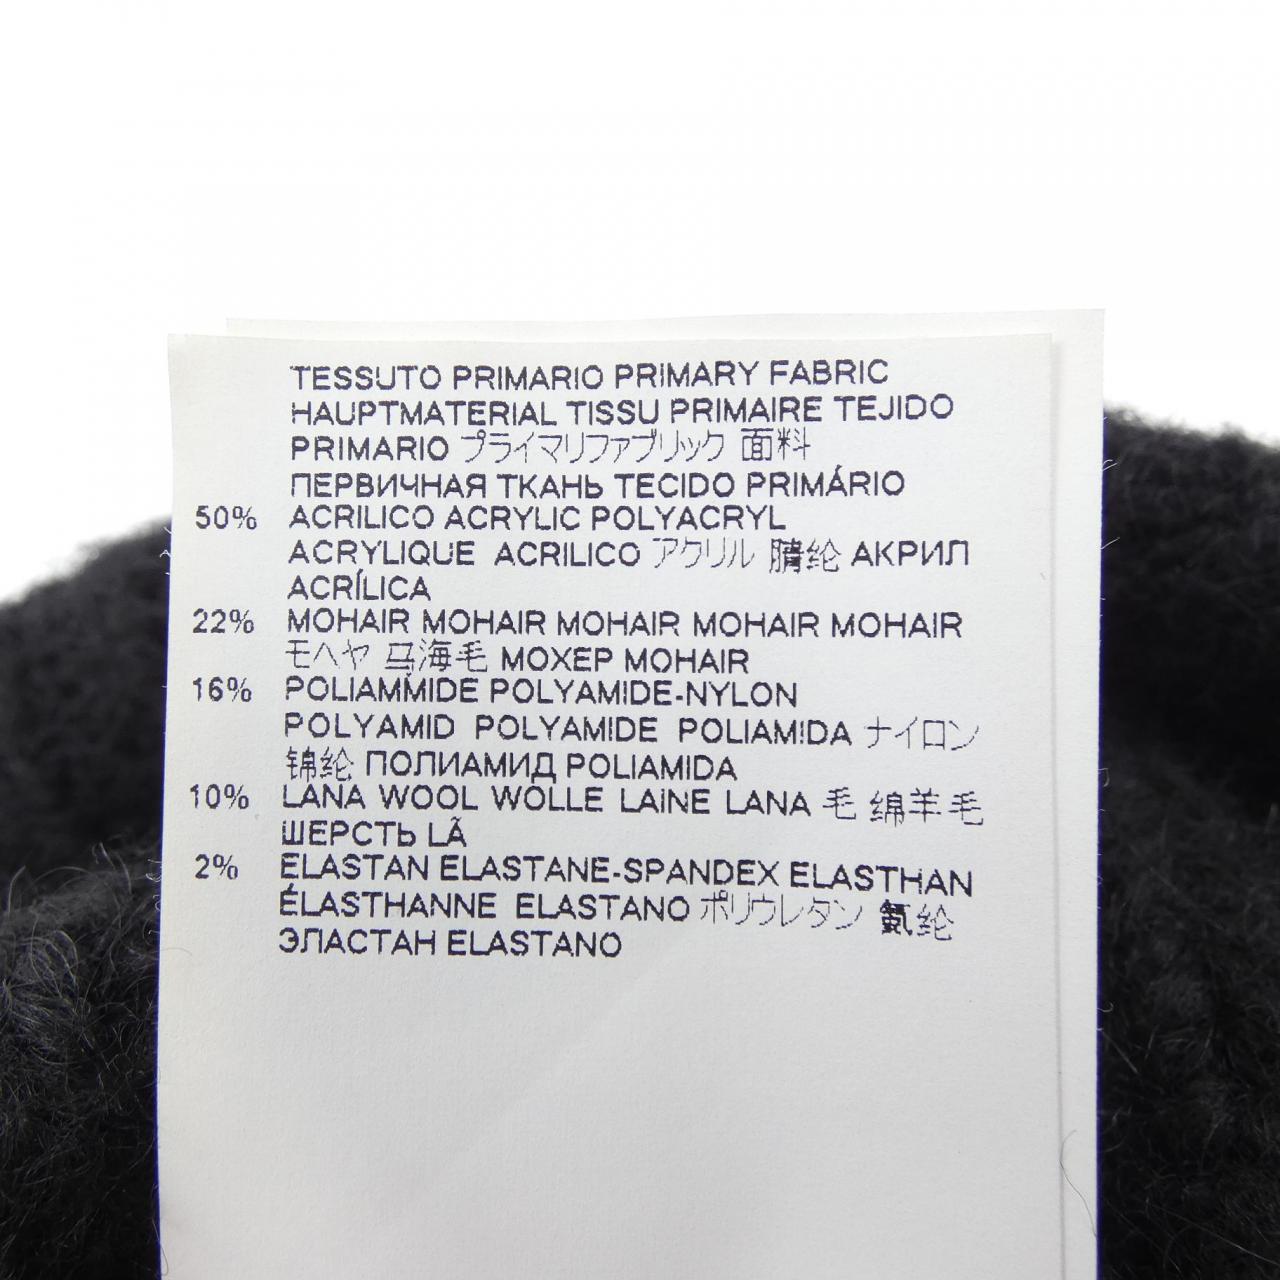 TESSUTO PRIMARIO PRIMARY FABRIC
HAUPTMATERIAL TISSU PRIMAIRE TEJIDO
PRIMARIO プライマリファブリック 面料
ПЕРВИЧНАЯ ТКАНЬ TECIDO PRIMÁRIO
50% ACRILICO ACRYLIC POLYACRYL
ACRYLIQUE ACRILICO アクリル 腈纶 АКРИЛ
ACRÍLICA
22% MOHAIR MOHAIR MOHAIR MOHAIR MOHAIR
モヘヤ 马海毛 МОХЕР MOHAIR
16% POLIAMMIDE POLYAMIDE-NYLON
POLYAMID POLYAMIDE POLIAMIDA ナイロン
锦纶 ПОЛИАМИД POLIAMIDA
10% LANA WOOL WOLLE LAINE LANA 毛 绵羊毛
ШЕРСТЬ LÃ
2% ELASTAN ELASTANE-SPANDEX ELASTHAN
ÉLASTHANNE ELASTANO ポリウレタン 氨纶
ЭЛАСТАН ELASTANO